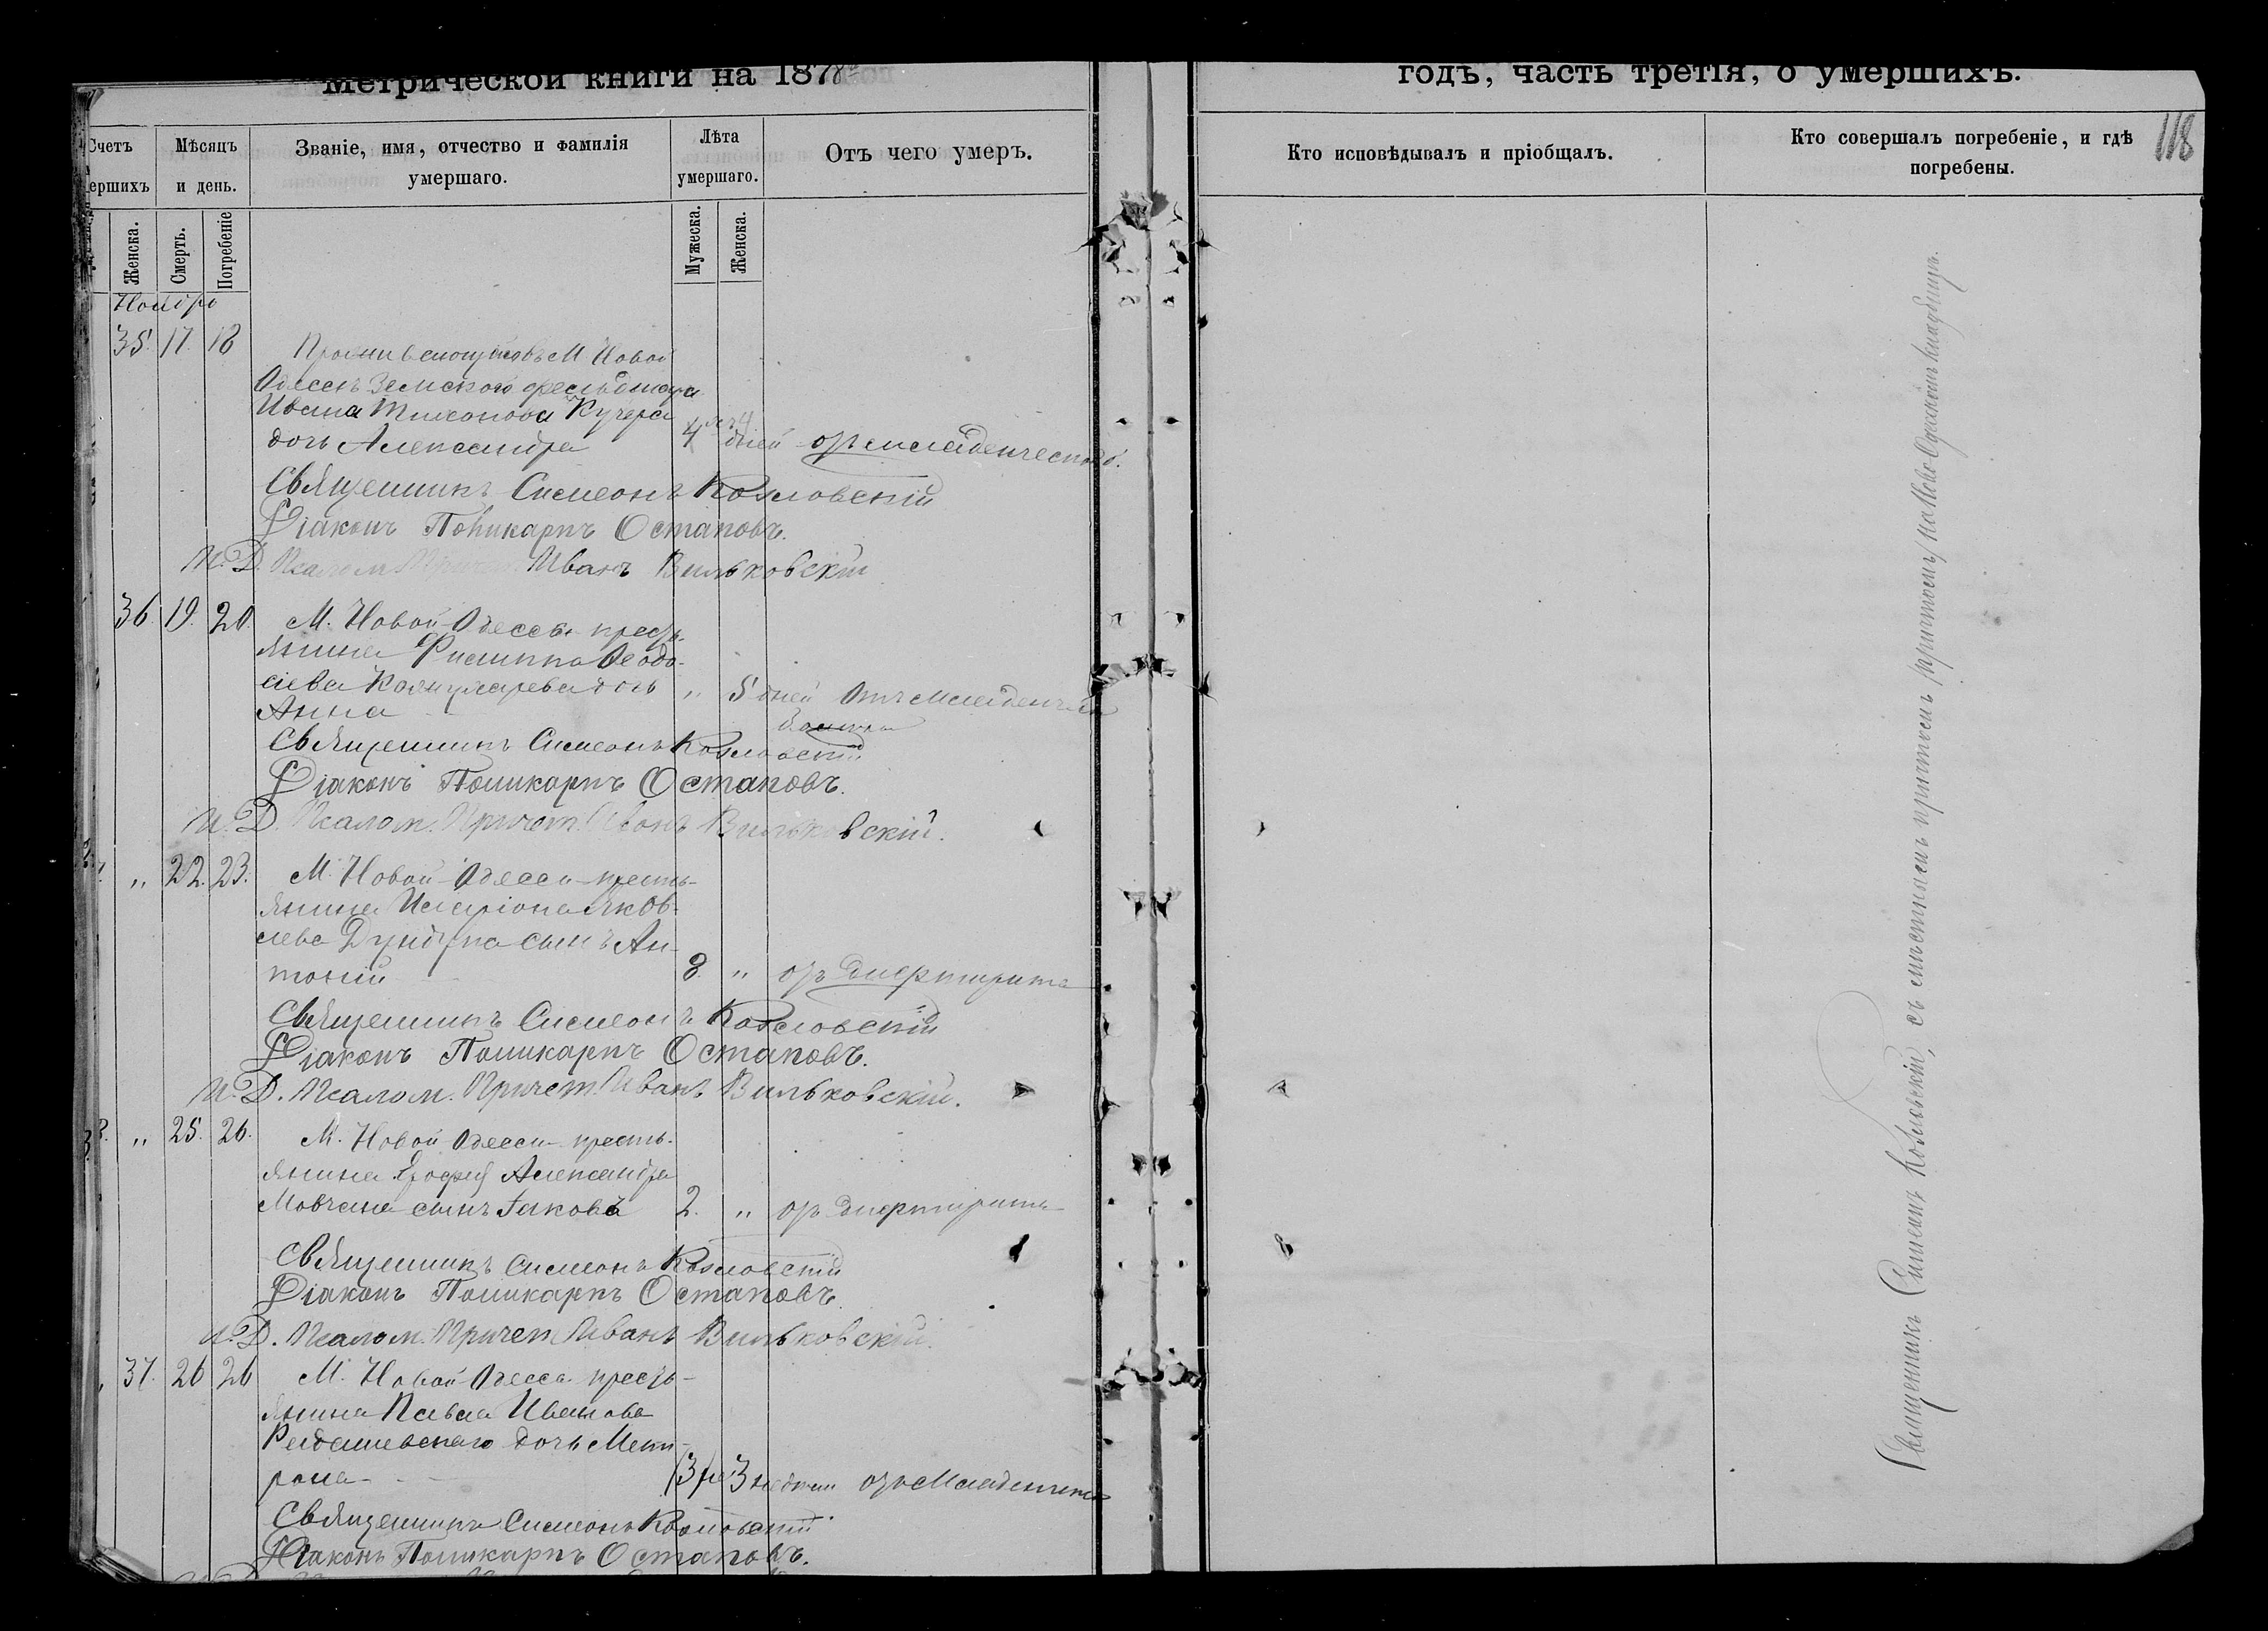 Метрической книги на 1878
годъ, часть третія, о умершихъ.
118
Счетъ
ершихъ
Мѣсяцъ
и день.
Званіе, имя, отчество и фамилія
умершаго.
Лѣта
умершаго.
Отъ чего умеръ.
Кто исповѣдывалъ и пріобщалъ.
Кто совершалъ погребеніе, и гдѣ
погребены.
Женска.
Смерть.
Погребеніе
Мужеска.
Женска.
Ноябрь
35. 17. 18
М Новой
Одессы Земского фельдшера
Ивана Тимонова Кучера
дочь Александра 4 дней отъ младенческой.
Священникъ Симеонъ Козловскій
Діаконъ Поликарпъ Остаповъ.
И. Д. Псалом. Причет. Иванъ Вильковскій
36. 19. 20. М. Новой Одессы кресть-
янина Филиппа Ѳеодо-
сіева дочь
Анна „ 5 дней Отъ младенческ
Священникъ Симеонъ Козловскій
Діаконъ Поликарпъ Остаповъ.
И. Д. Псалом. Причет. Иванъ Вильковскій.
„ 22. 23. М. Новой Одессы кресть-
янина Иларіона Яков-
лева Дундука сынъ Ан-
тоній 8. „ отъ дифтирита
Священникъ Симеонъ Козловскій
Діаконъ Поликарпъ Остаповъ.
И. Д. Псалом. Причет. Иванъ Вильковскій.
„ 25. 26. М. Новой Одессы кресть-
янина Ерофея Александра
Мовчана сынъ Іаковъ 2. „ отъ дифтирита
Священникъ Симеонъ Козловскій
Діаконъ Поликарпъ Остаповъ.
И. Д. Псалом. Причет Иванъ Вильковскій.
37. 26 26 М. Новой Одессы кресть-
янина Павла Иванова
дочь Мат-
рона 3 недели отъ младенческ
Священникъ Симеонъ Козловскій
Діаконъ Поликарпъ Остаповъ.
Священникъ Симеонъ Козловскій, съ мѣстнымъ причтомъ на Ново-Одесскомъ кладбищѣ.